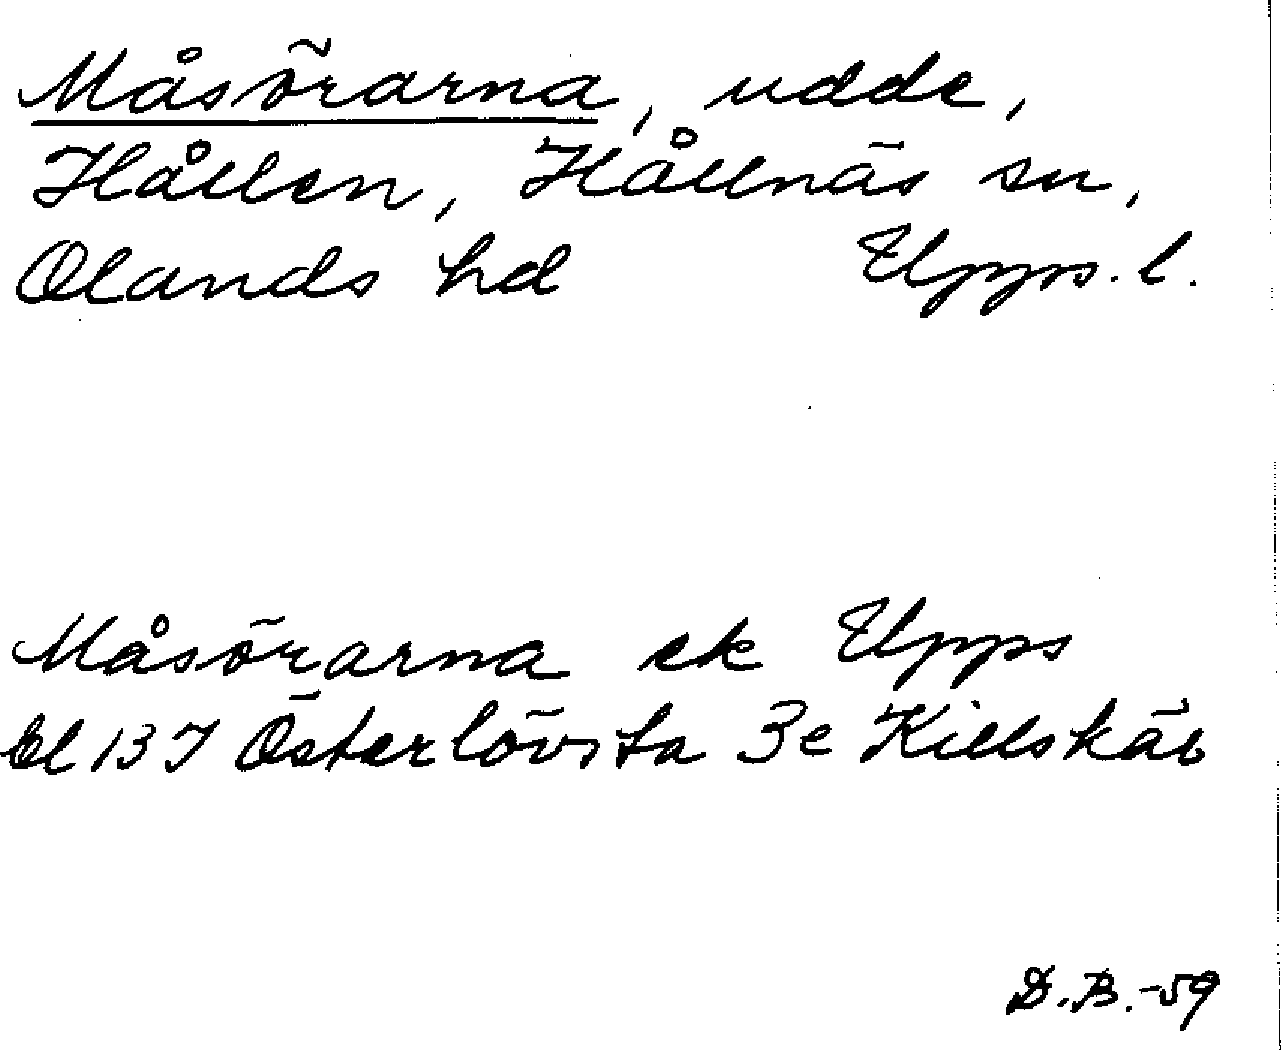 Måsörarna, udde,
Hållen, Hållnäs sn,
Olands hd Upps. l.
Måsörarna ek Upps
bl 13 I Österlövsta 3e Killskär
D.B.-59